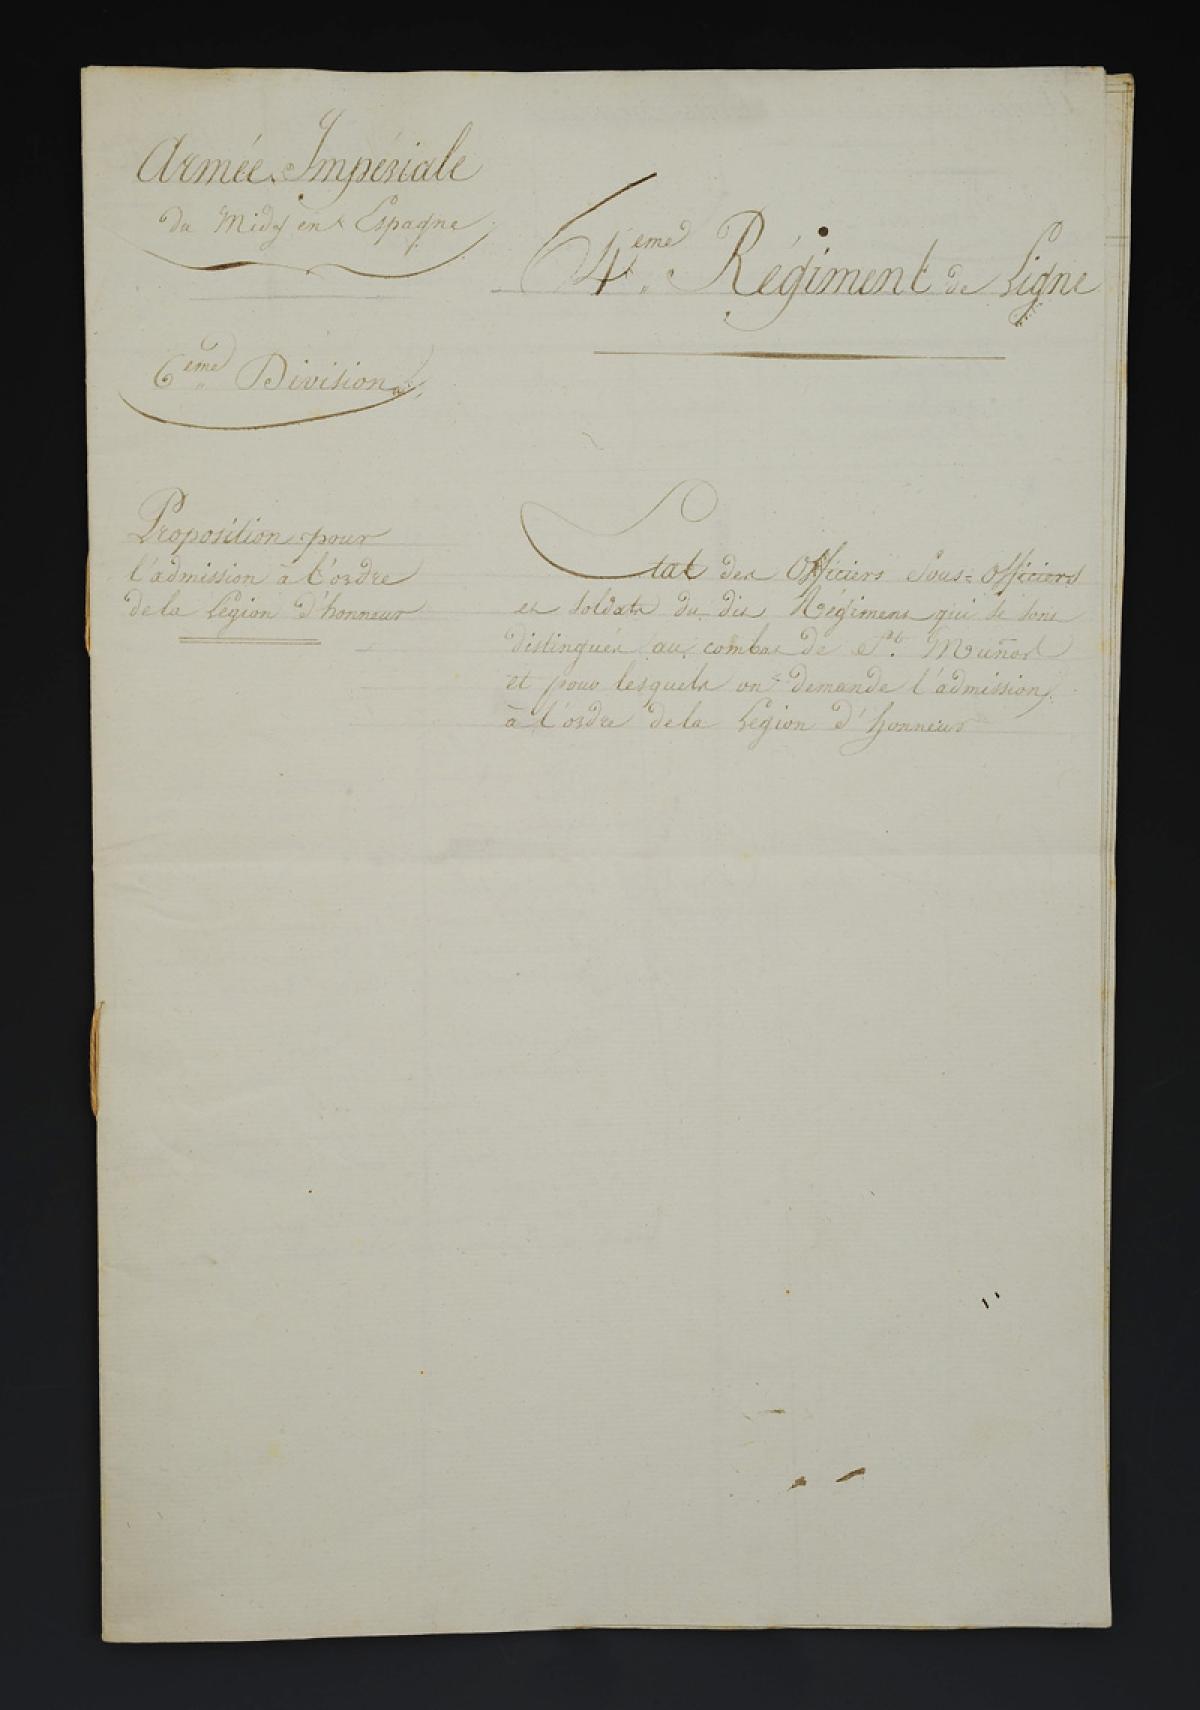 Armée Impériale
du Midy en Espagne
6eme Division
Proposition pour
l'admission à l'ordre
de la Légion d'honneur
64eme Régiment de Ligne
Etat des Officiers Sous=Officiers
et soldats du dit Régiment qui se sont
distingués au combat de St. Muñor
et pour lesquels on demande l'admission
à l'ordre de la Légion d'honneur